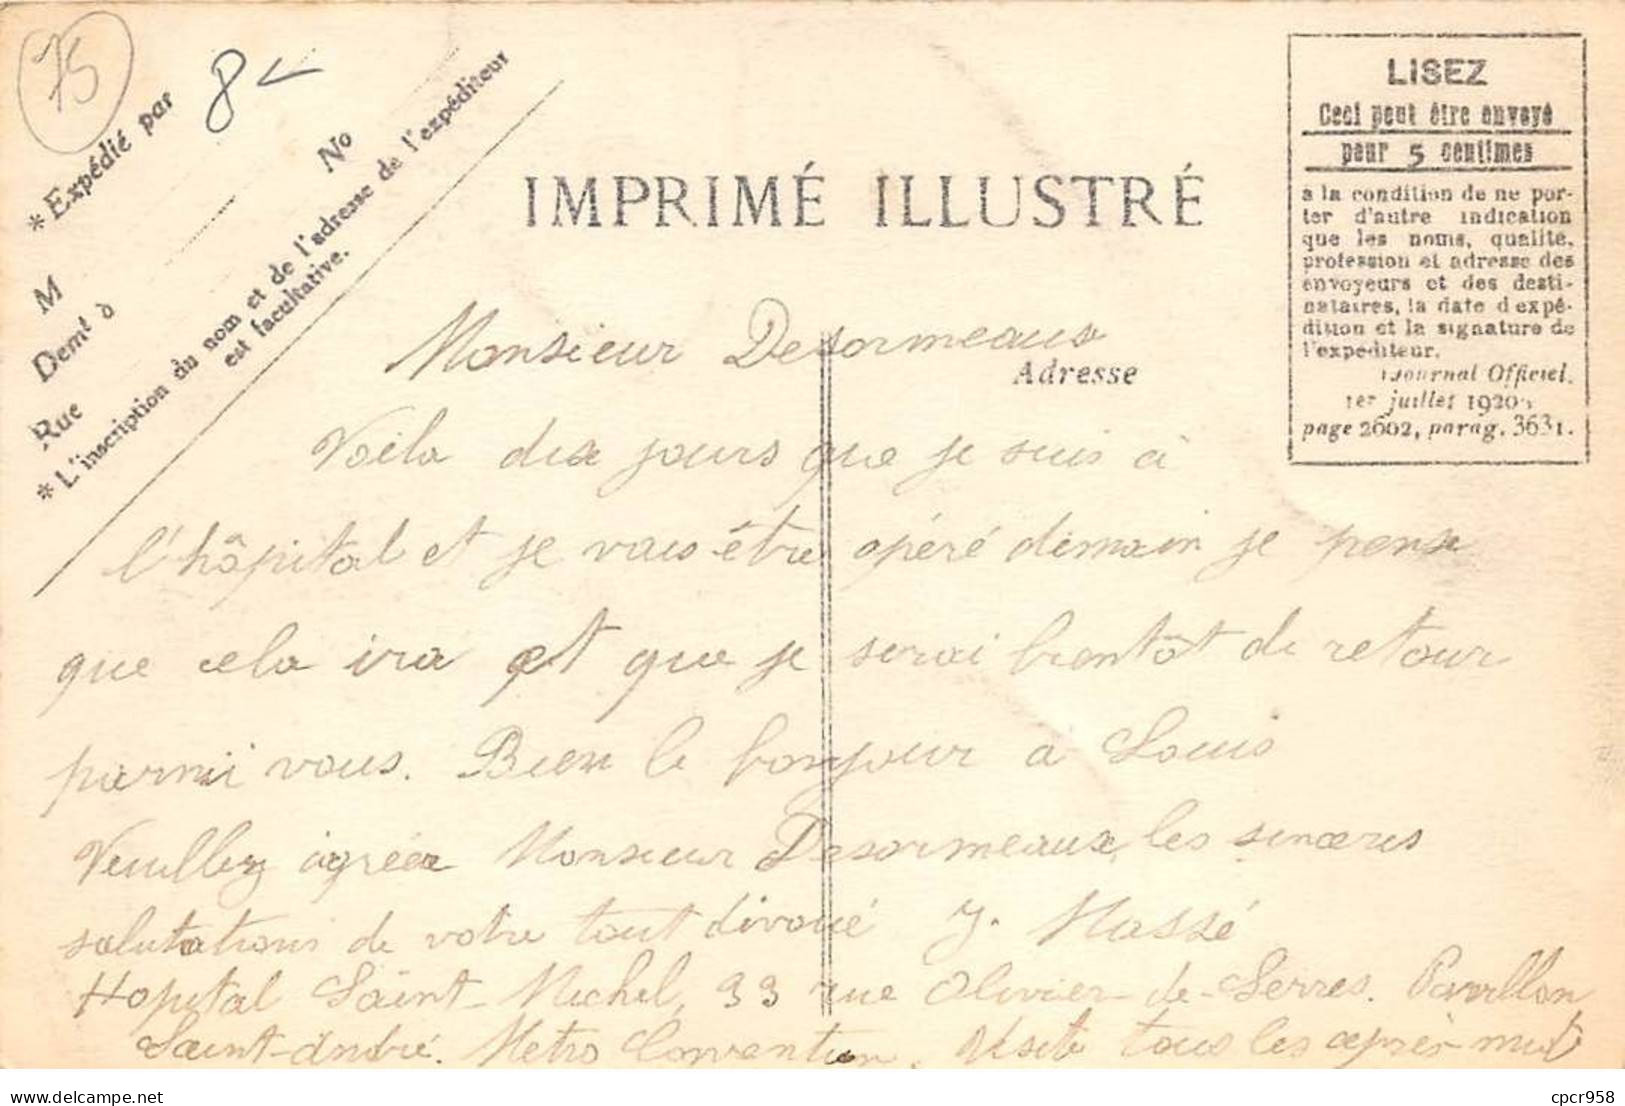 75
8
* Expédié par
M
Demt à
Rue
No
* L'inscription du nom et de l'adresse de l'expéditeur
est facultative.
IMPRIMÉ ILLUSTRÉ
LISEZ
Ceci peut être envoyé
pour 5 centimes
à la condition de ne por-
ter d'autre indication
que les noms, qualité,
profession et adresse des
envoyeurs et des desti-
nataires, la date d'expé-
dition et la signature de
l'expéditeur.
(Journal Officiel.
1er juillet 1920)
page 2602, parag. 3631.
Adresse
Monsieur Desormeaux
Voila dix jours que je suis à
l'hôpital et je vais être opéré demain je pense
que cela ira et que je serai bientôt de retour
parmi vous. Bien le bonjour à Louis
Veuillez agréer Monsieur Desormeaux, les sincères
salutations de votre tout dévoué J. Massé
Hopital Saint-Michel, 33 rue Olivier-de-Serres. Pavillon
Saint-André. Métro Convention. Visite tous les après-midi
cpcr958